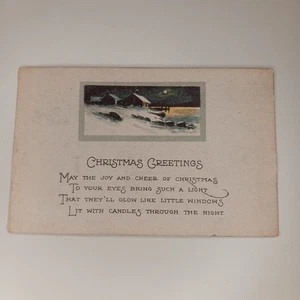 Christmas Greetings
May the joy and cheer of Christmas
To your eyes bring such a light
That they'll glow like little windows
Lit with candles through the night